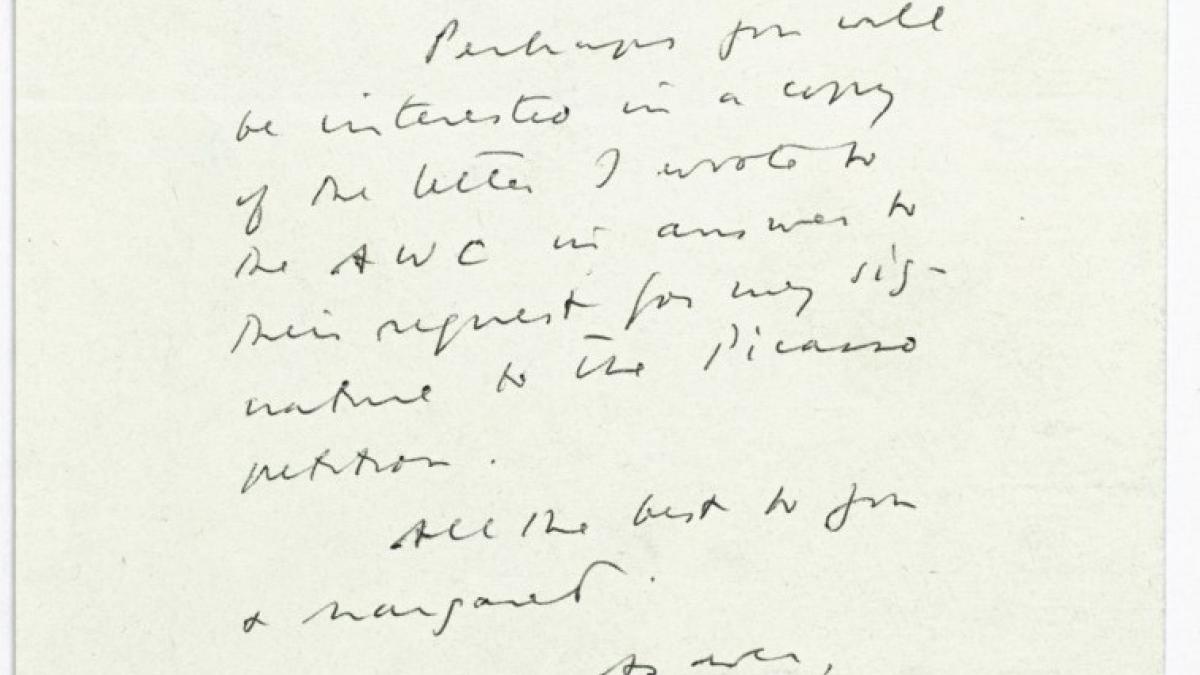 Perhaps you will
be interested in a copy
of the letter I wrote to
the AWC in answer to
their request for my sig-
nature to the Picasso
petition.
All the best to you
& Margaret.
As ever,